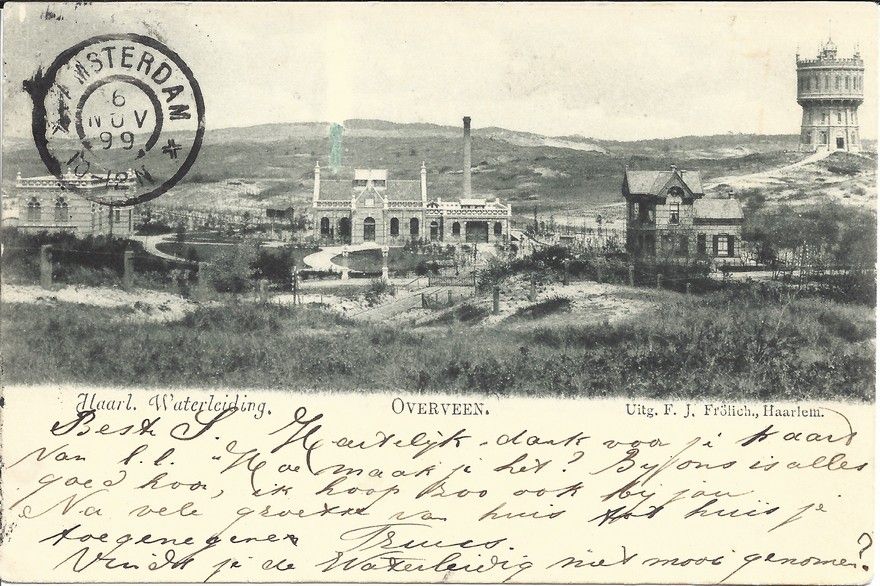 AMSTERDAM
6
NOV
99
10-12N
Haarl. Waterleiding.
OVERVEEN.
Uitg. F. J. Frölich., Haarlem.
Beste S. Hartelijk dank voor je kaart
van l.l. Hoe maak je het? Bij ons is alles
goed hoor, ik hoop zoo ook bij jou
Na vele groeten van huis tot huis je
toegenegenen Truus.
Vindt je de Waterleidig niet mooi genomen?